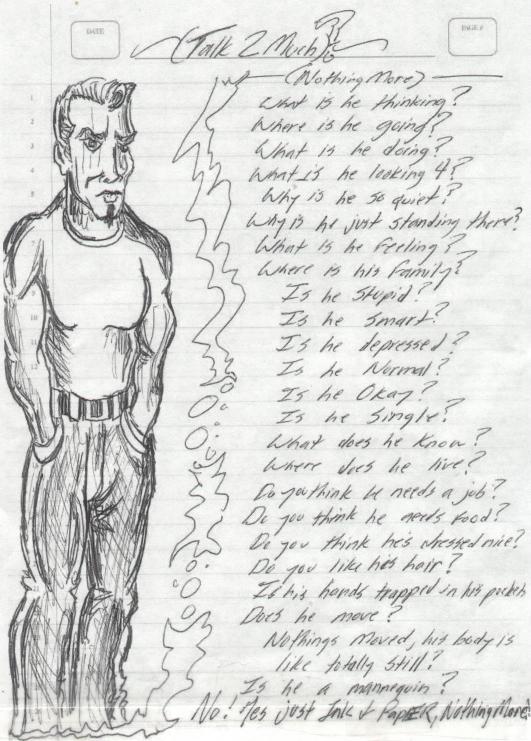 DATE
PAGE #
(Talk 2 Much)?
(Nothing More)
What is he thinking?
Where is he going?
What is he doing?
What is he looking 4?
Why is he so quiet?
Why is he just standing there?
What is he feeling?
Where is his family?
Is he stupid?
Is he smart?
Is he depressed?
Is he Normal?
Is he Okay?
Is he Single?
What does he know?
Where does he live?
Do you think he needs a job?
Do you think he needs food?
Do you think he's dressed nice?
Do you like his hair?
Is his hands trapped in his pockets
Does he move?
Nothings Moved, his body is
like totally still?
Is he a mannequin?
No! He's just Ink & PapER, Nothing More.